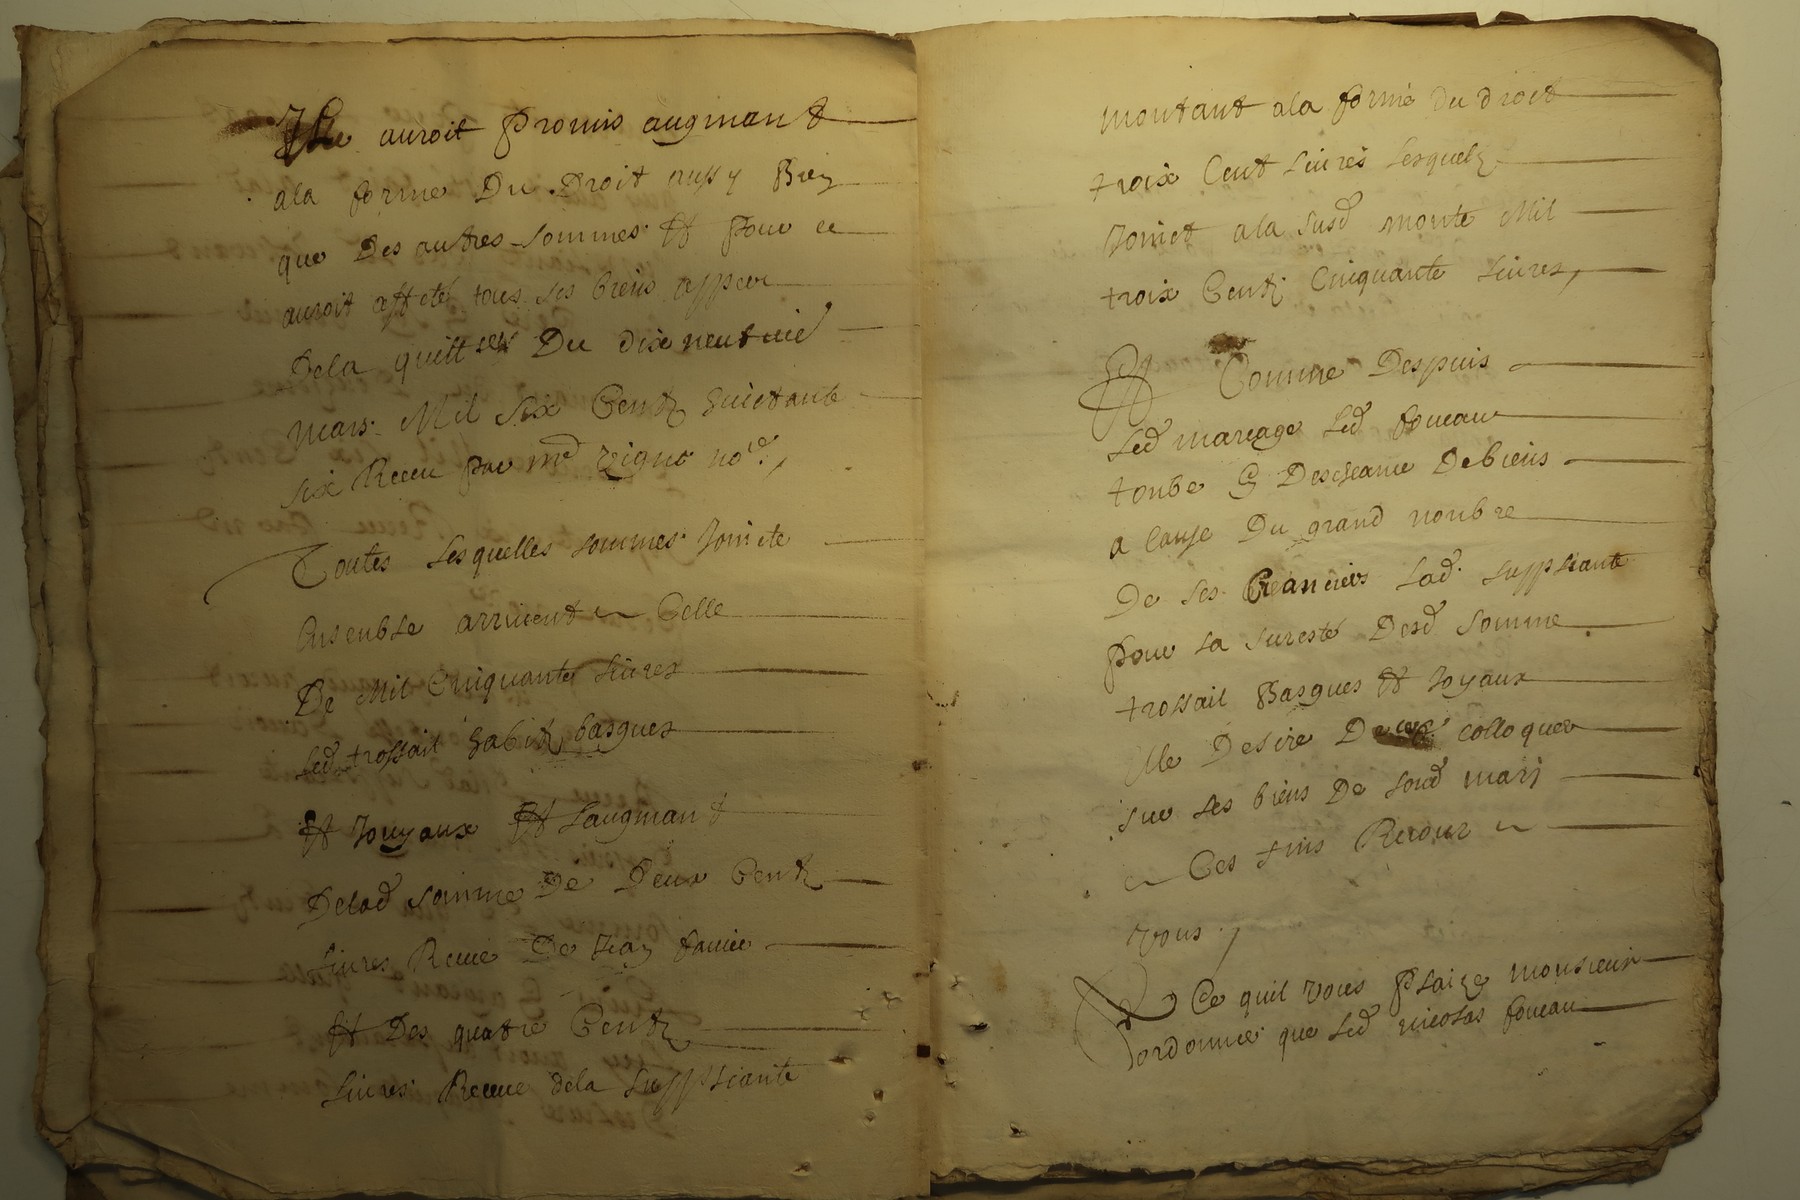 Elle auroit Promis augmant
ala forme Du Droit aussy Bien
que Des autres sommes Et Pour ce
auroit affecté tous ses biens appeor
Dela quittce Du dix neufvie
mars Mil Six Centz huictante
six Receu par me vigne nore,
Toutes Lesquelles sommes Joincte
Ensemble arrivent a Celle
De Mil Cinquante Livres
Led trossail habitz basgues
Et Jouyaux Et Laugmant
Delad somme De Deux Centz
Livres Receue De Jean
Et Des quatre Centz
Livres Receue dela suppliante
montant ala forme Du droit
troix Cent Livres Lesquelz
Joinct ala susd monte Mil
troix Centz Cinquante Livres,
Et Comme Despuis
Led mareage Led foucau
tombe En Descheance De biens
a Cause Du grand nombre
De ses Creanciers Lad suppliante
Pour La sureste Desd somme
trossail Basgues Et Joyaux
Elle Desire De colloquer
sur Les biens De sond mary
a Ces fins Recour a
vous,
A Ce quil vous Plaize monsieur
ordonner que Led nicolas foucau